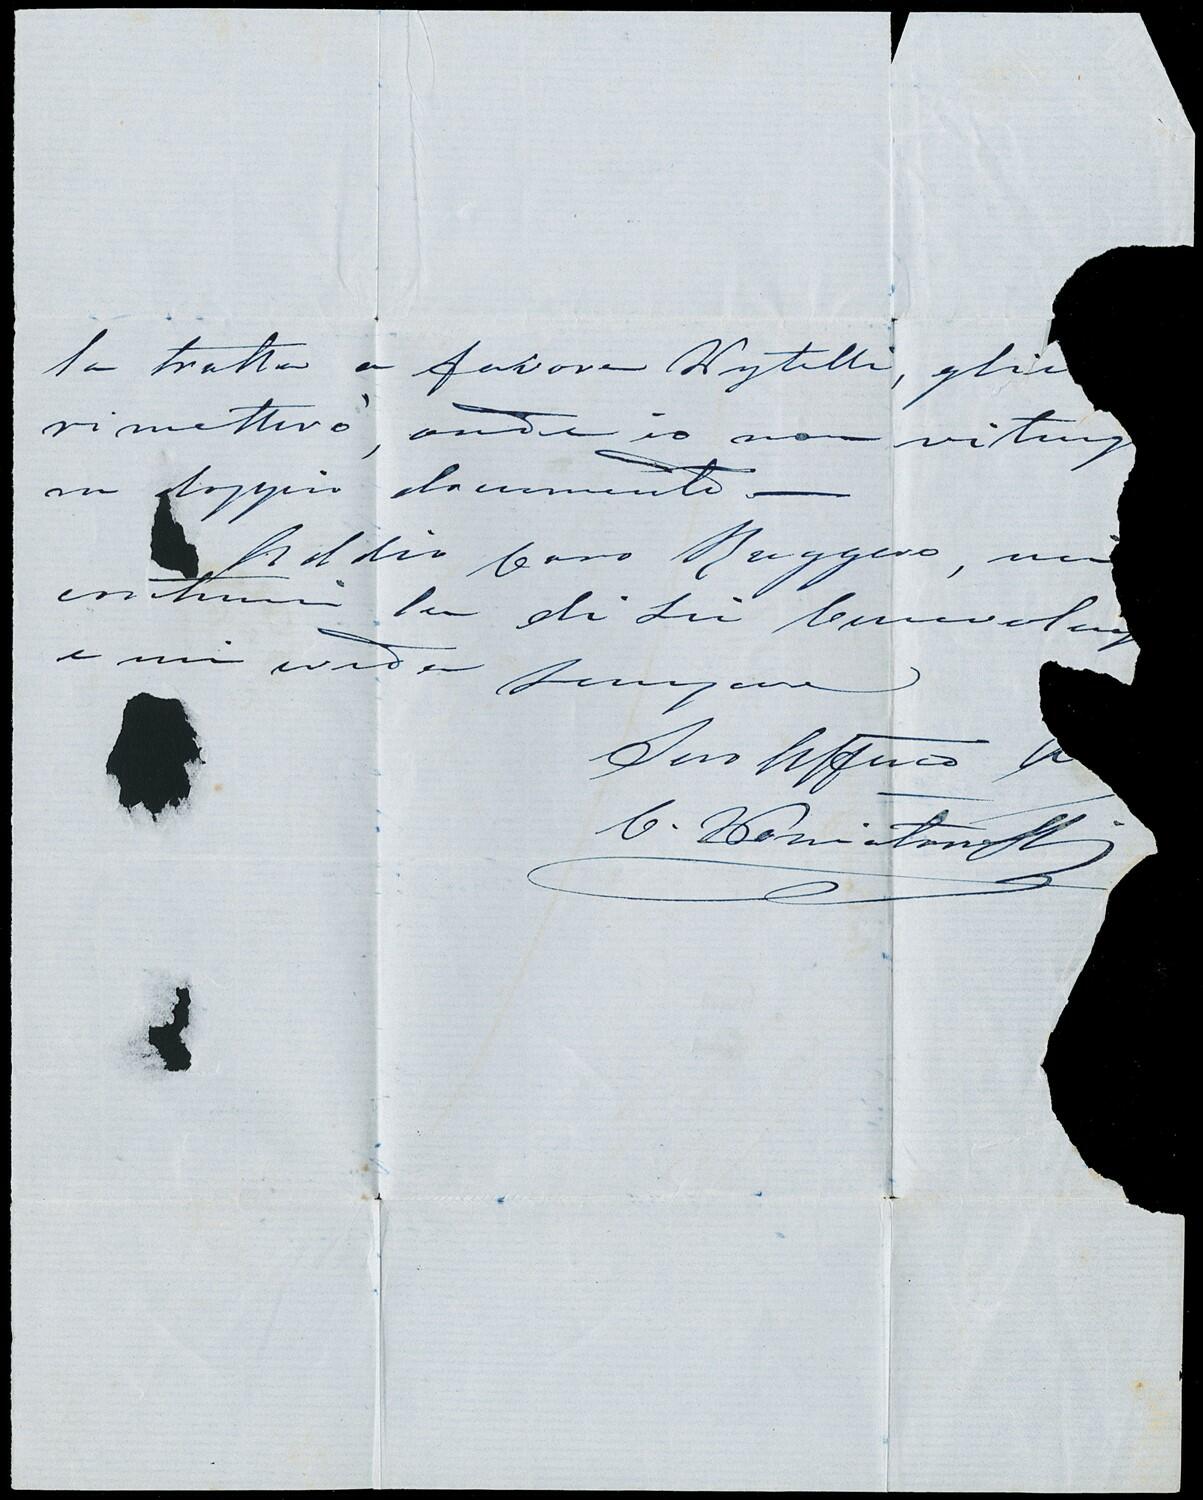 la tratta a favore Vytelli, glie
rimetterò, onde io non riteng
un doppio documento —
Addio Caro Ruggero, mi
continui la di Lei benevolenz
e mi creda sempre
Suo Affmo
C.